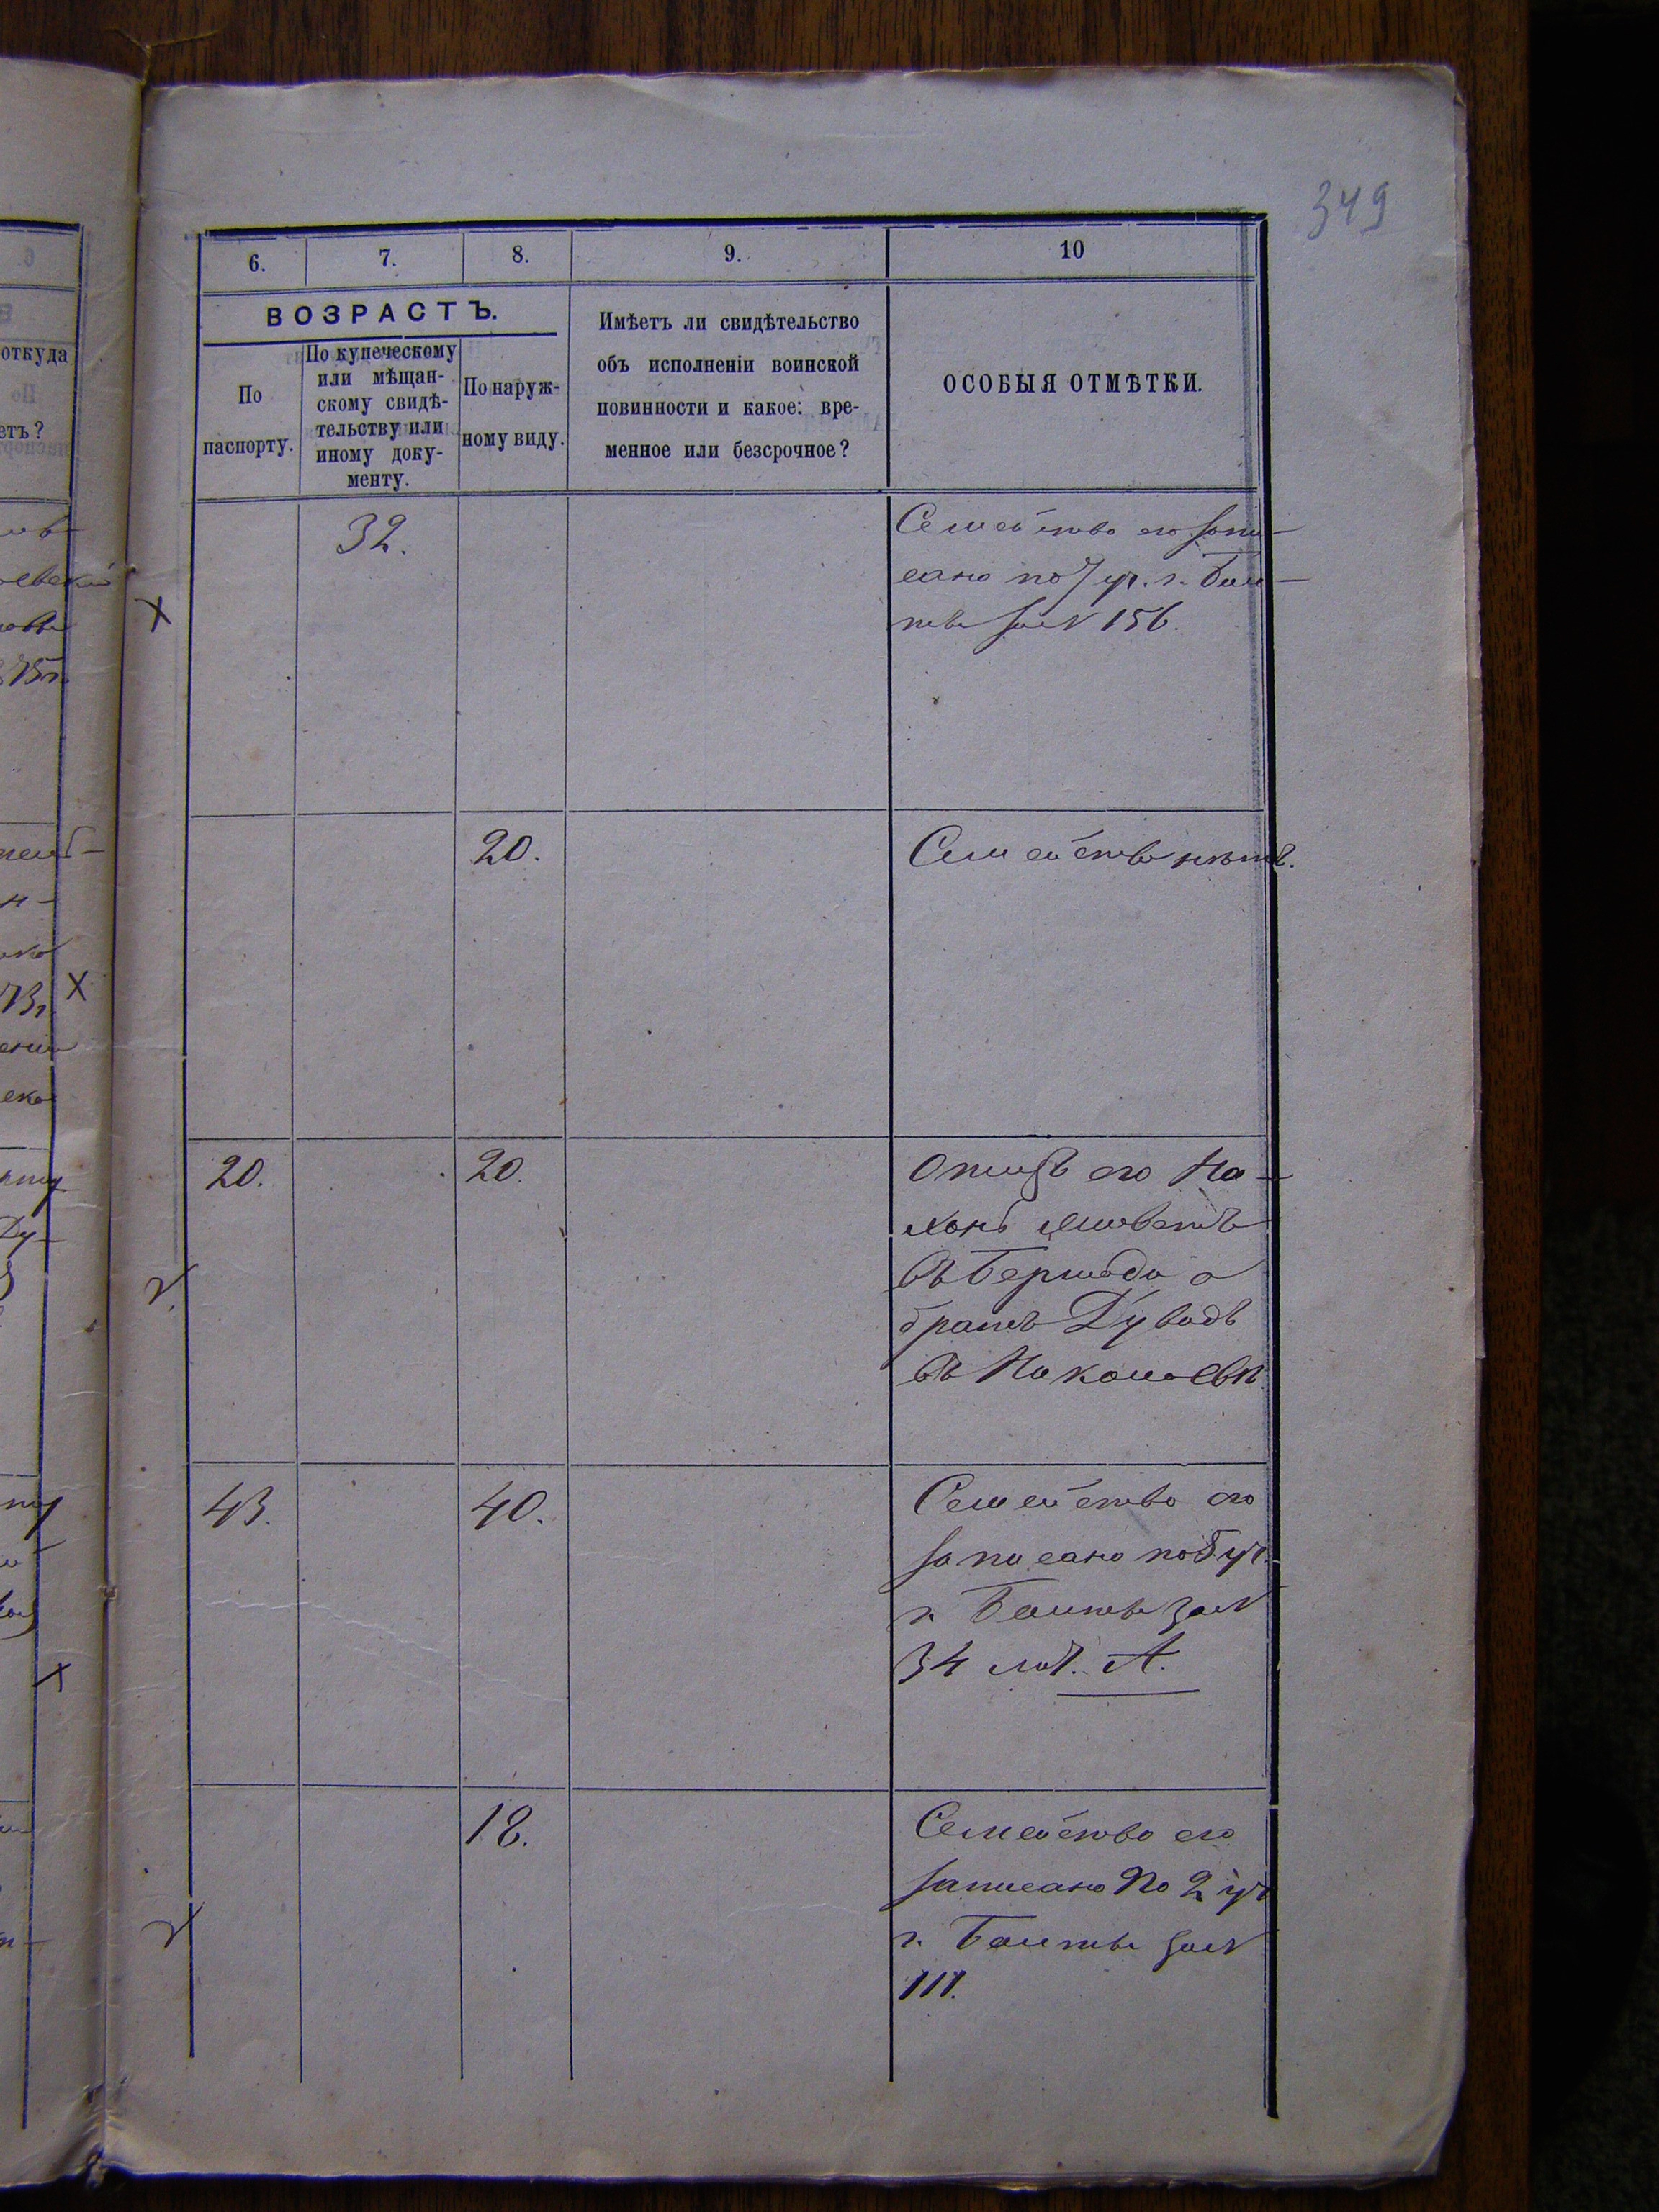 349
6. 7. 8. 9. 10
ВОЗРАСТЪ.
По
паспорту.
По купеческому
или мѣщан-
скому свидѣ-
тельству или
иному доку-
менту.
По наруж-
ному виду.
Имѣетъ ли свидѣтельство
объ исполненіи воинской
повинности и какое: вре-
менное или безсрочное?
ОСОБЫЯ ОТМѢТКИ.
откуда
етъ?
75г.
73г.
32.
Семейство его запи-
сано по 7 уч. г. Бал-
ты за № 156.
20.
Семейства нѣтъ.
20. 20.
Отецъ его На-
хонъ живетъ
въ Бершади а
братъ Дувадъ
въ Николаевѣ.
43. 40.
Семейство его
записано по 5 уч.
г. Балты за №
34 лит. А.
18.
Семейство его
записано по 2 уч
г. Балты за №
111.